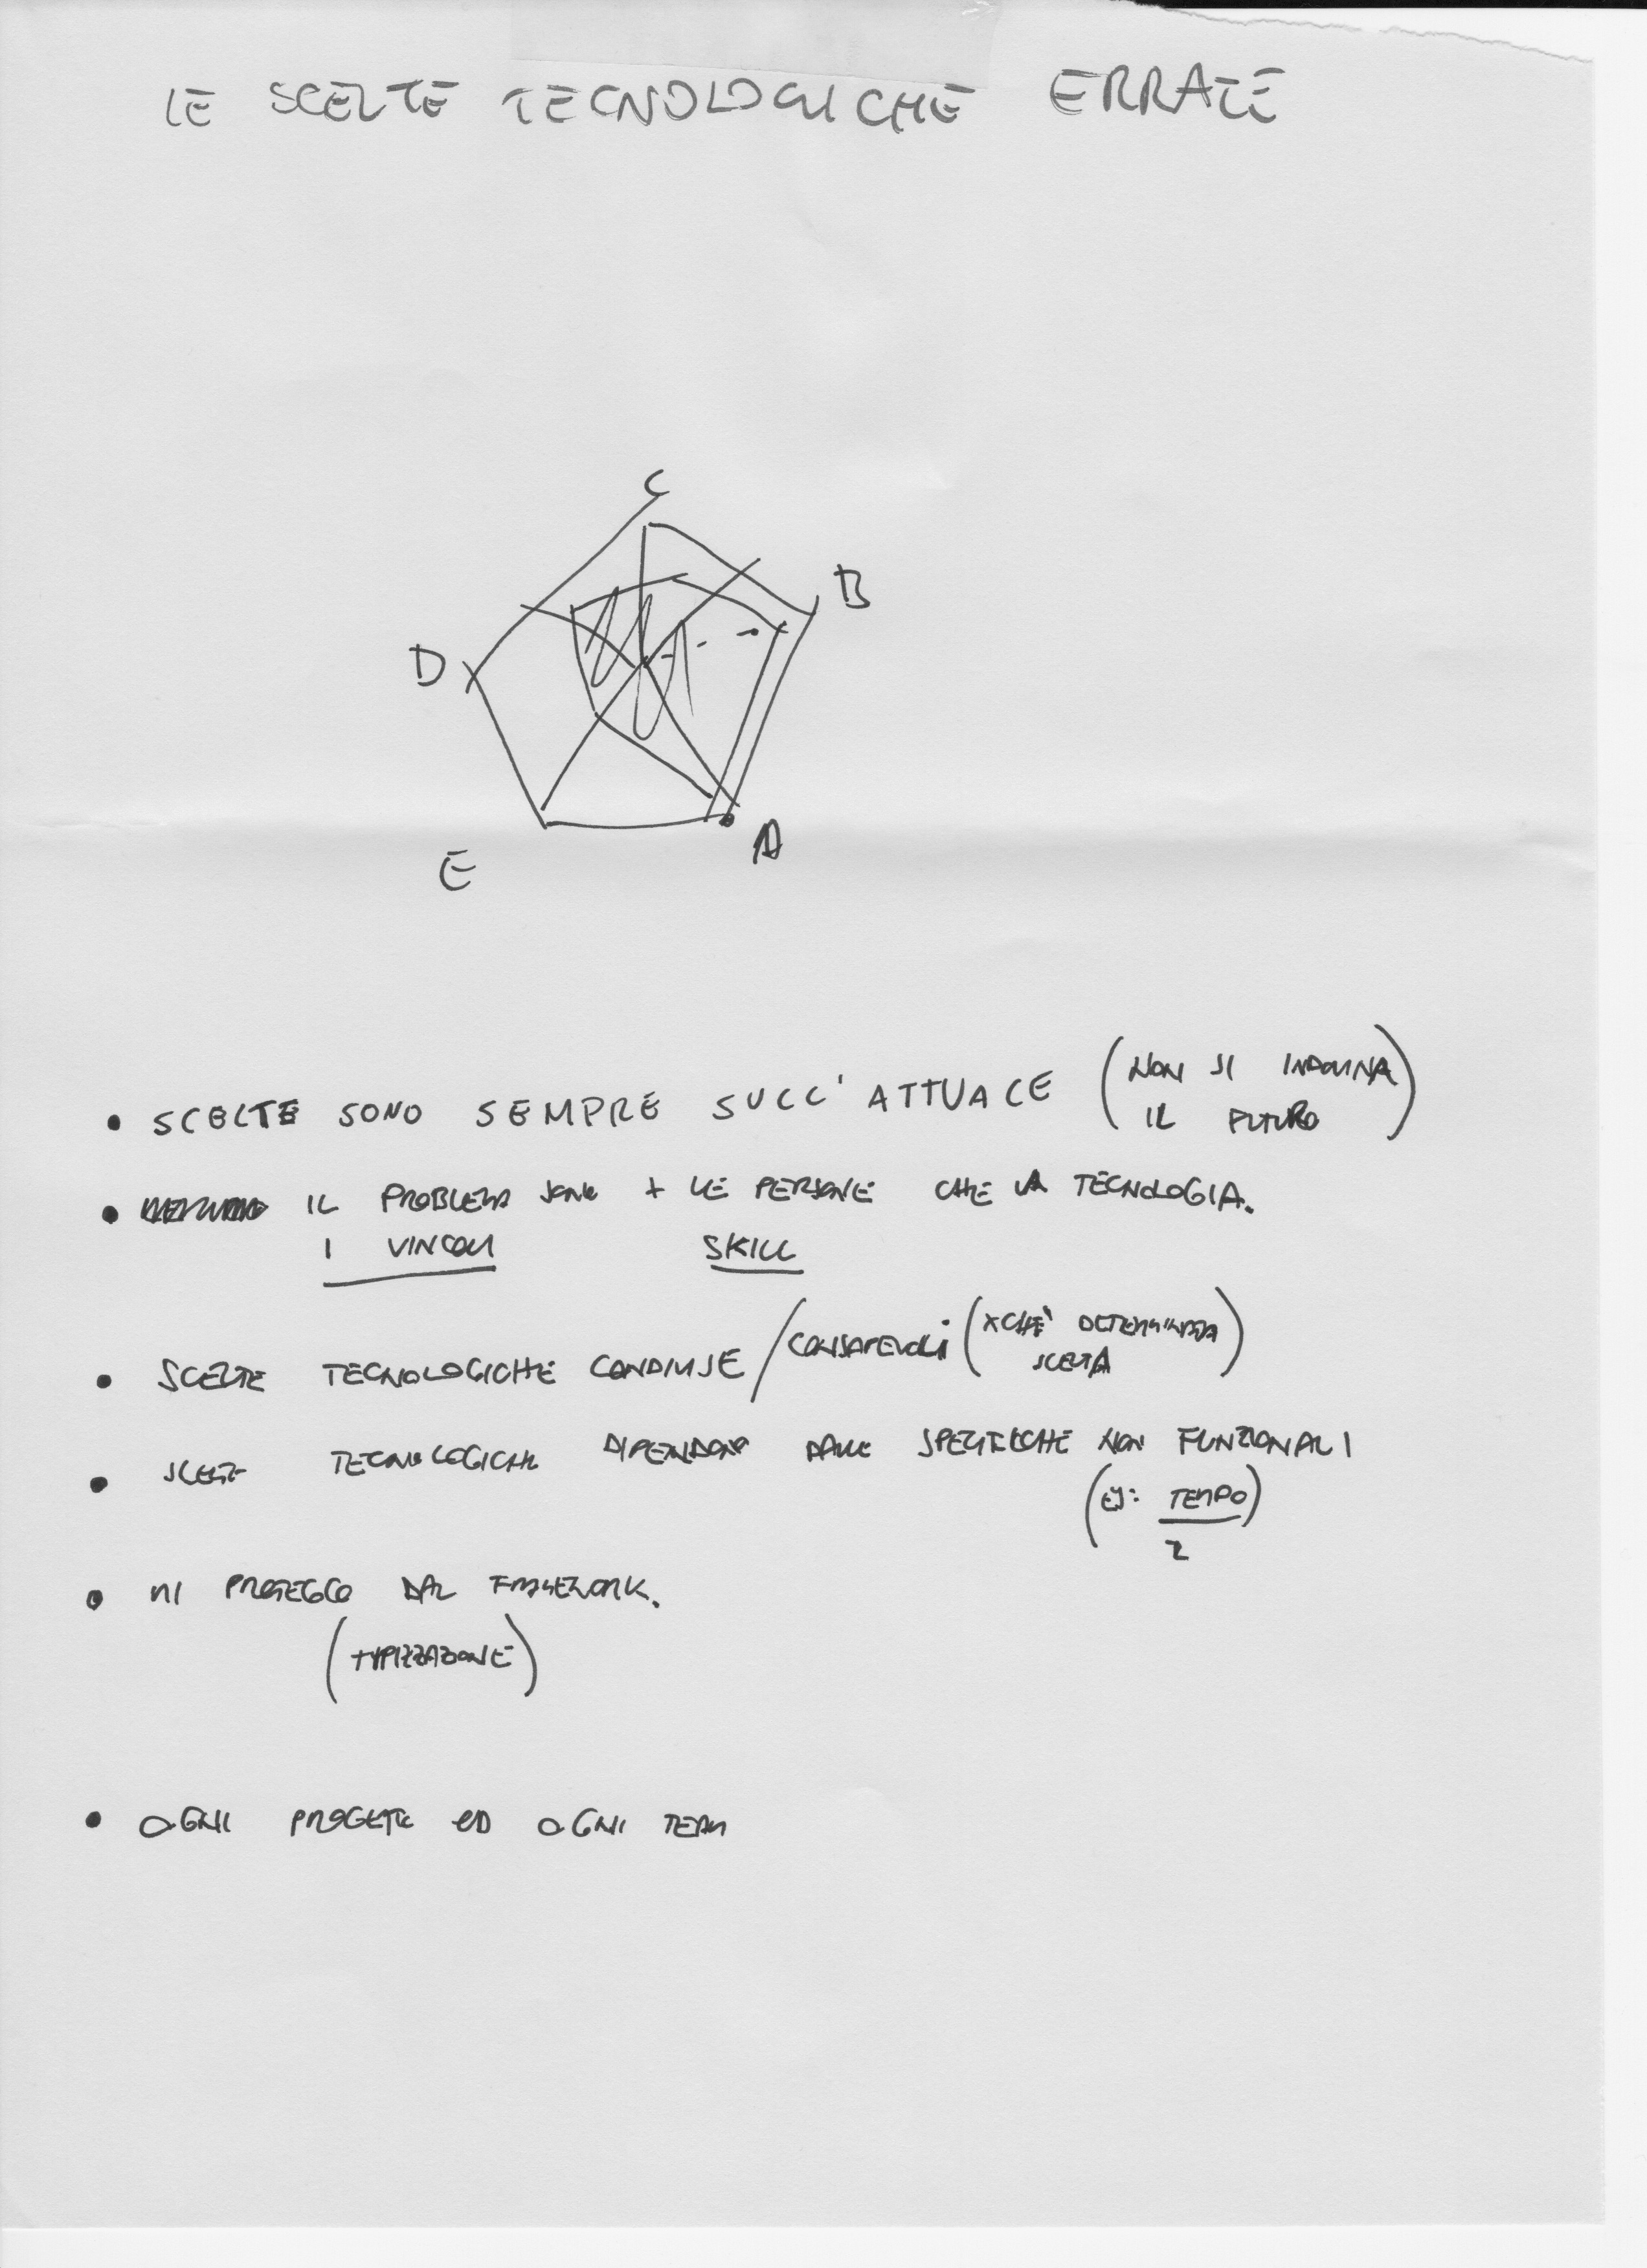 LE SCELTE TECNOLOGICHE ERRATE
C
B
D
E
A
• SCELTE SONO SEMPRE SULL'ATTUALE (NON SI INDOVINA
IL FUTURO)
• IL PROBLEMA SONO + LE PERSONE CHE LA TECNOLOGIA.
I VINCOLI SKILL
• SCELTE TECNOLOGICHE CONDIVISE / CONSAPEVOLI (XCHÈ DETERMINATA
SCELTA)
• SCELTE TECNOLOGICHE DIPENDONO DALLE SPECIFICHE NON FUNZIONALI
(ES: TEMPO)
2
• MI PROTEGGO DAL FRAMEWORK.
(TIPIZZAZIONE)
• OGNI PROGETTO ED OGNI TEAM